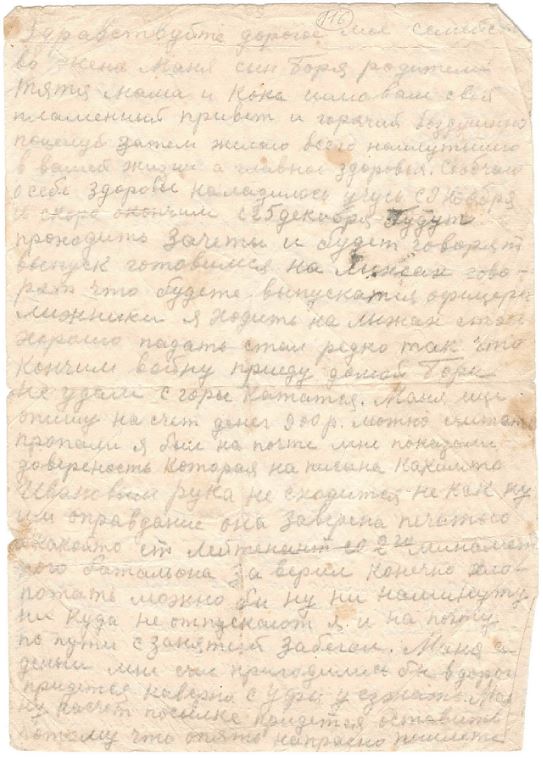 116
Здравствуйте дорогое мое семейст
во жена Маня син Боря родители
тятя мама и Кока шлю вам свой
пламенный привет и горячий воздушный
поцелуй затем желаю всего наилутшего
в вашей жизни а главное здоровья. Сообчаю
о себе здоровье наладилось учусь с 9 ноября
и скоро окончим с 25 декабря будут
проходить зачеты и будет говорят
выпуск готовимся на лижах гово-
рят что будете выпускатся офицери
лижники я ходить на лижах стал
хорошо падать стал редко так что
кончим войну приеду домой Боря
не удали с гори кататся. Маня ищи
опишу на счет денег 900 р. можно считать
пропали я был на почте мне показали
доверность которая на писана каким то
Ивановым рука не сходится не как ну
им оправдание она заверена печатью
какойто ст лейтенант 2го миномет
ного батальона за верил конечно хло
потать можно би ну ни наминуту
ни куда не отпускают я и на почту
по пути с занятий забегал. Маня
деньги мне счас пригодились би вдорог
придется наверно с Уфы уезжать. Мая
ну насчет посилке придется оставить
потому что опять напрасно пошлете